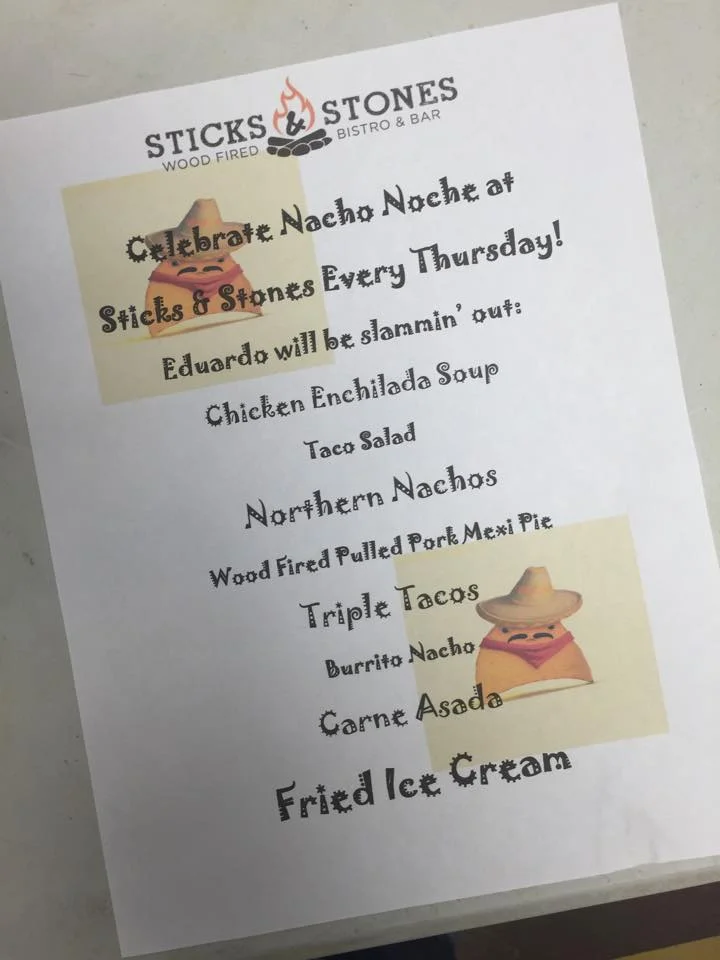 STICKS & STONES
WOOD FIRED BISTRO & BAR
Celebrate Nacho Noche at
Sticks & Stones Every Thursday!
Eduardo will be slammin' out:
Chicken Enchilada Soup
Taco Salad
Northern Nachos
Wood Fired Pulled Pork Mexi Pie
Triple Tacos
Burrito Nacho
Carne Asada
Fried Ice Cream